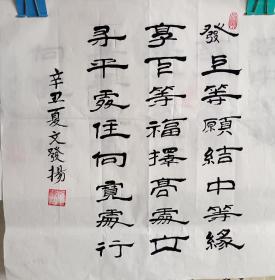 發上等願結中等緣
享下等福擇高處立
尋平處住向寬處行
辛丑夏文發揚